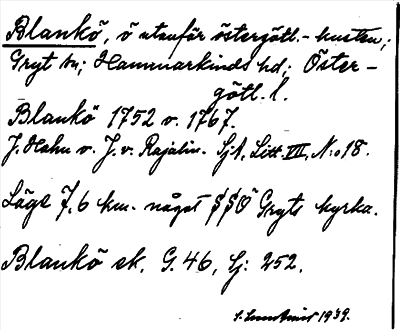 Blankö, ö utanför östergötl.-kusten,;
Gryt sn; Hammarkinds hd; Öster-
götl. l.
Blankö 1752 o. 1767.
J. Hahn o. J. v. Rajalin. Sj.A, Litt. VII, N:o 18.
Läge 7,6 km. något SSO Gryts kyrka.
Blankö ek. G. 46, Lj: 252.
1939.